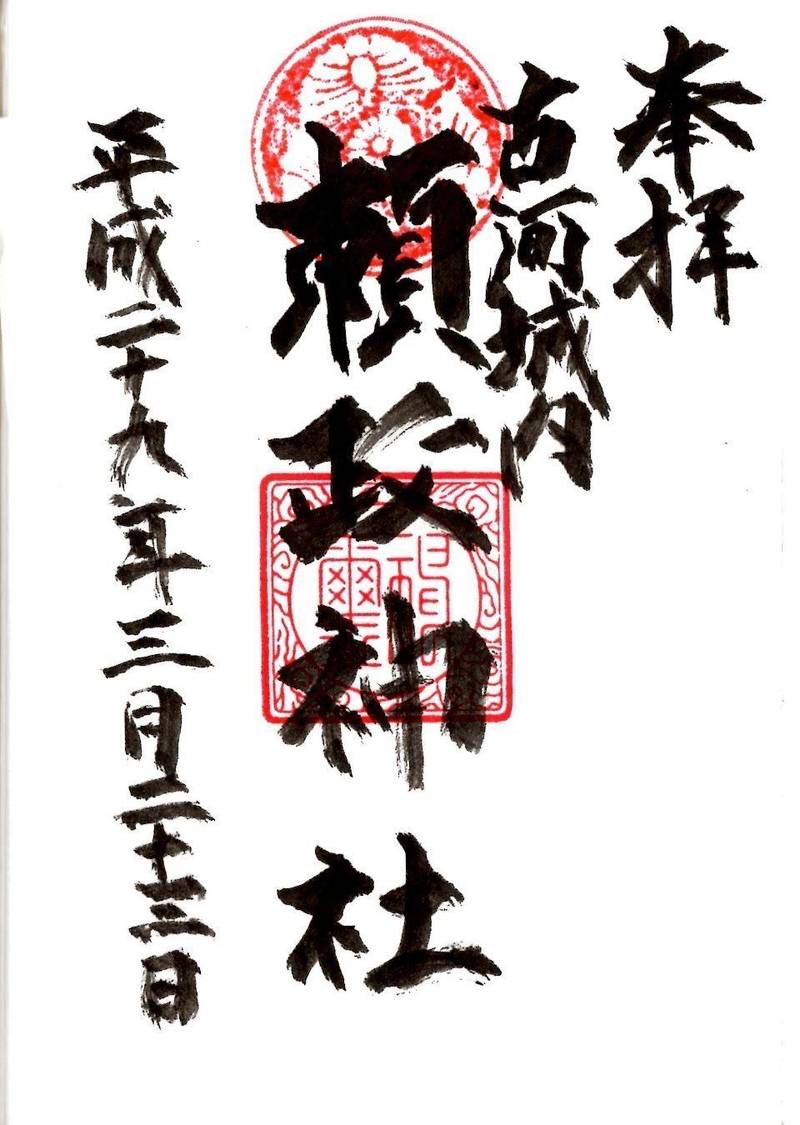 奉拝
古河城内
頼政神社
平成二十九年三月二十三日